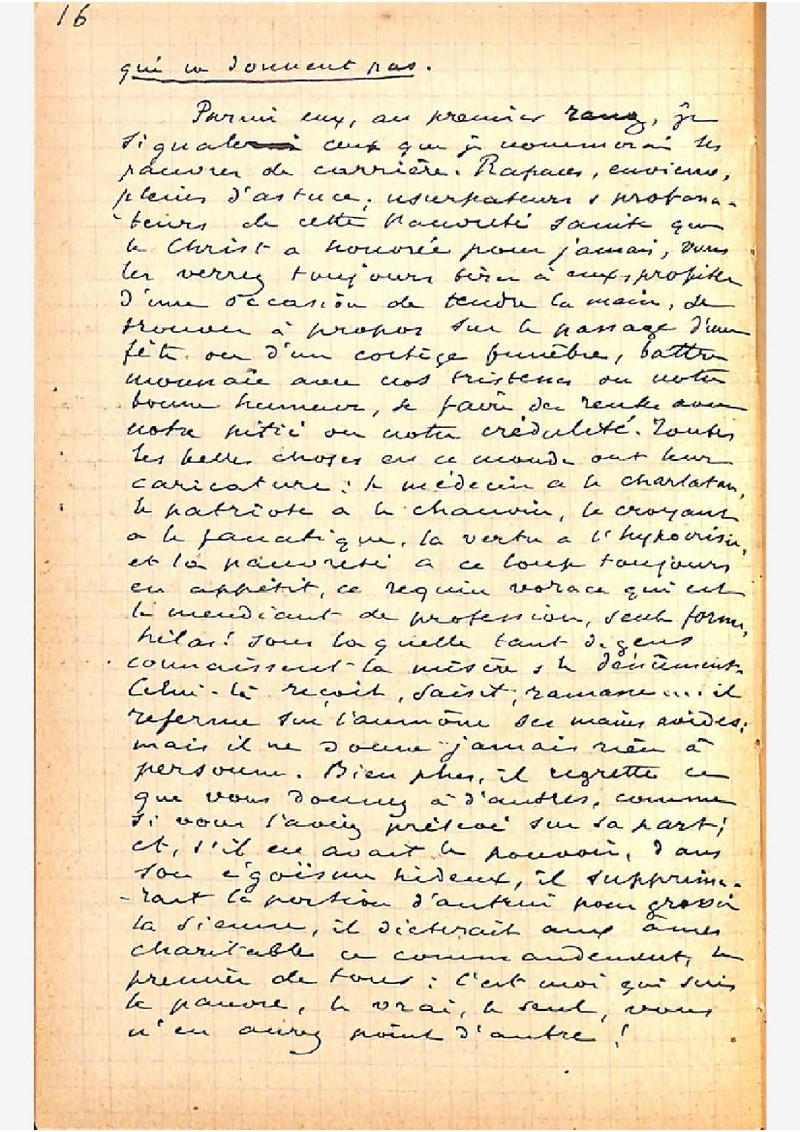 16
qui ne donnent pas.
Parmi eux, au premier rang, je
signale ceux que je nommerai les
pauvres de carrière. Rapaces, envieux,
pleins d'astuce, usurpateurs & profana-
teurs de cette Pauvreté sainte que
le Christ a honorée pour jamais, vous
les verrez toujours bien à eux profiter
d'une occasion de tendre la main, se
trouver à propos sur le passage d'une
fête ou d'un cortège funèbre, battre
monnaie avec nos tristesses ou notre
bonne humeur, se faire des rentes avec
notre pitié ou notre crédulité. Toutes
les belles choses en ce monde ont leur
caricature : le médecin a le charlatan,
le patriote a le chauvin, le croyant
a le fanatique, la vertu a l'hypocrisie,
et la pauvreté a ce loup toujours
en appétit, ce requin vorace qui est
le mendiant de profession, seule forme,
hélas ! sous laquelle tant de gens
connaissent la misère & le dénûment.
Celui-là reçoit, saisit, ramasse... il
referme sur l'aumône ses mains avides;
mais il ne donne jamais rien à
personne. Bien plus, il regrette ce
que vous donnez à d'autres, comme
si vous l'aviez prélevé sur sa part;
et, s'il en avait le pouvoir, dans
son égoïsme hideux, il supprime-
-rait la portion d'autrui pour grossir
la sienne, il dicterait aux âmes
charitables ce commandement, le
premier de tous : C'est moi qui suis
le pauvre, le vrai, le seul, vous
n'en aurez point d'autre !